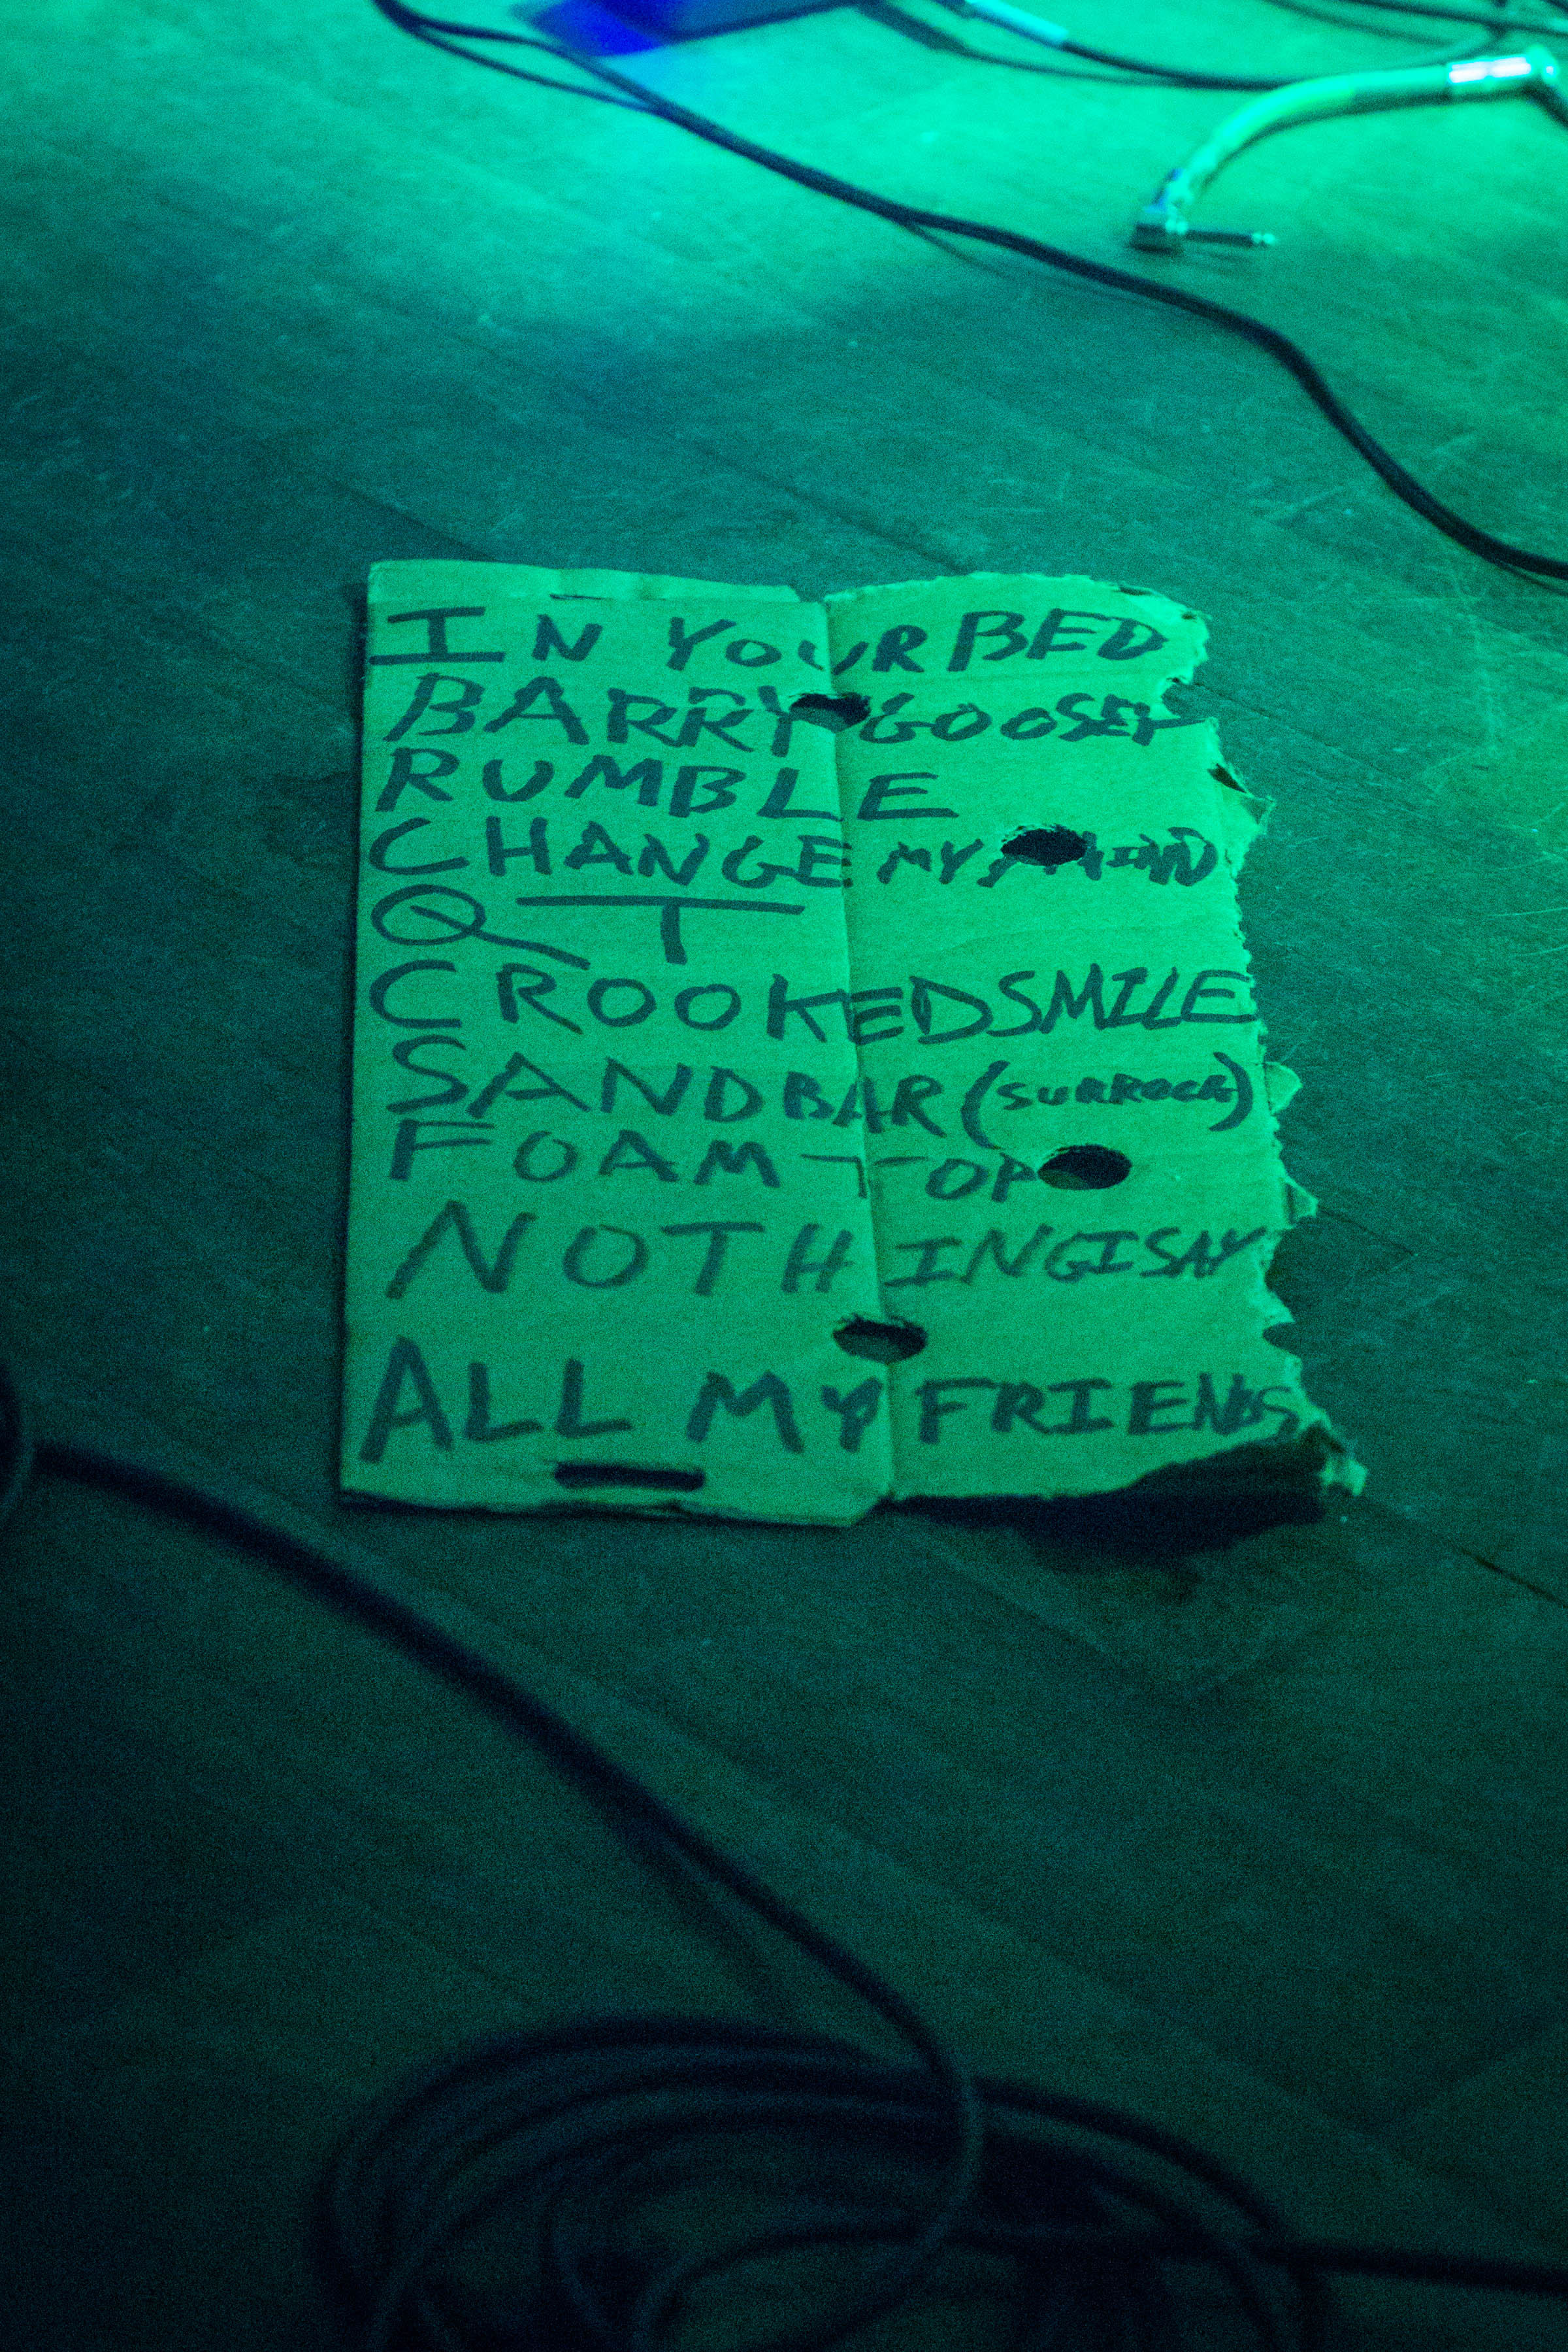 IN YOUR BED
BARRY GOOSEY
RUMBLE
CHANGE MY MIND
QT
CROOKED SMILE
SANDBAR (SURROCK)
FOAM TOP
NOTHING I SAY
ALL MY FRIENDS